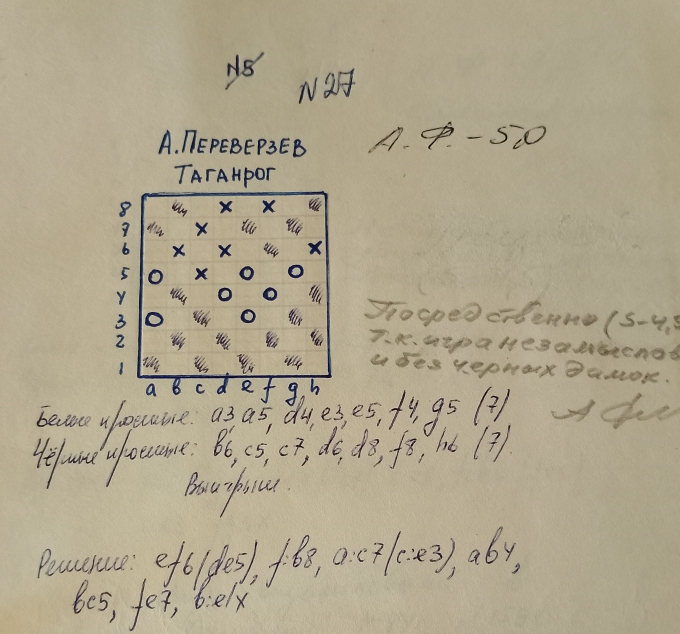 N5
N 27
А. Ф. - 5,0
А. ПЕРЕВЕРЗЕВ
ТАГАНРОГ
8
7
6
5
4
3
2
1
a b c d e f g h
Посредственно (5-4,5
т.к. игра незамыслов
и без черных дамок.
Белые простые: а3, а5, d4, e3, e5, f4, g5 (7)
Чёрные простые: b6, c5, c7, d6, d8, f8, h6 (7).
Выигрыш.
Решение: ef6 (de5), f:b8, a:c7 (c:e3), ab4,
bc5, fe7, b:e1x